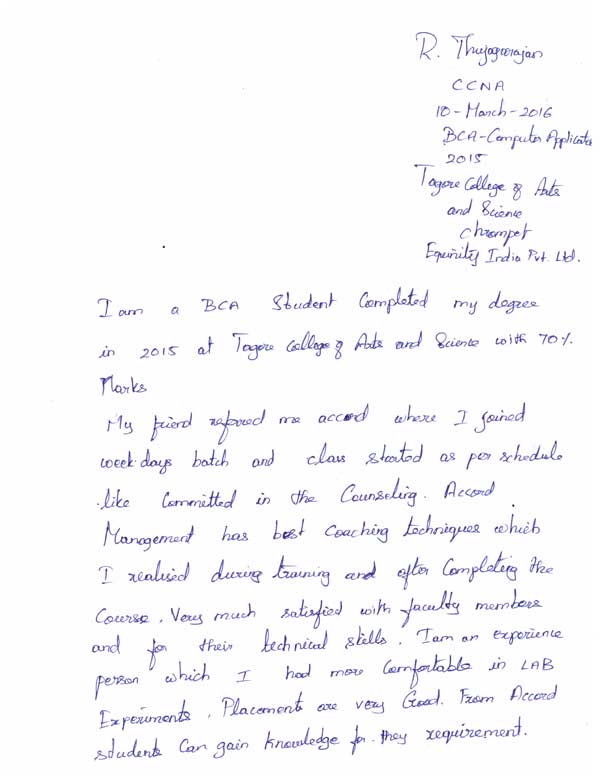 R. Thyagarajan
CCNA
10-March-2016
BCA-Computer Applicatio
2015
Tagore College of Arts
and Science
Chrompet
Equinity India Pvt. Ltd.
I am a BCA Student Completed my degree
in 2015 at Tagore College of Arts and Science with 70%
Marks
My friend refered me accord where I joined
week days batch and class started as per schedule
like Committed in the Counseling. Accord
Management has best Coaching techniques which
I realised during training and after Completing the
Course. Very much satisfied with faculty members
and for their technical skills. I am an experience
person which I had more Comfortable in LAB
Experiments. Placement are very Good. From Accord
students Can gain knowledge for they requirement.